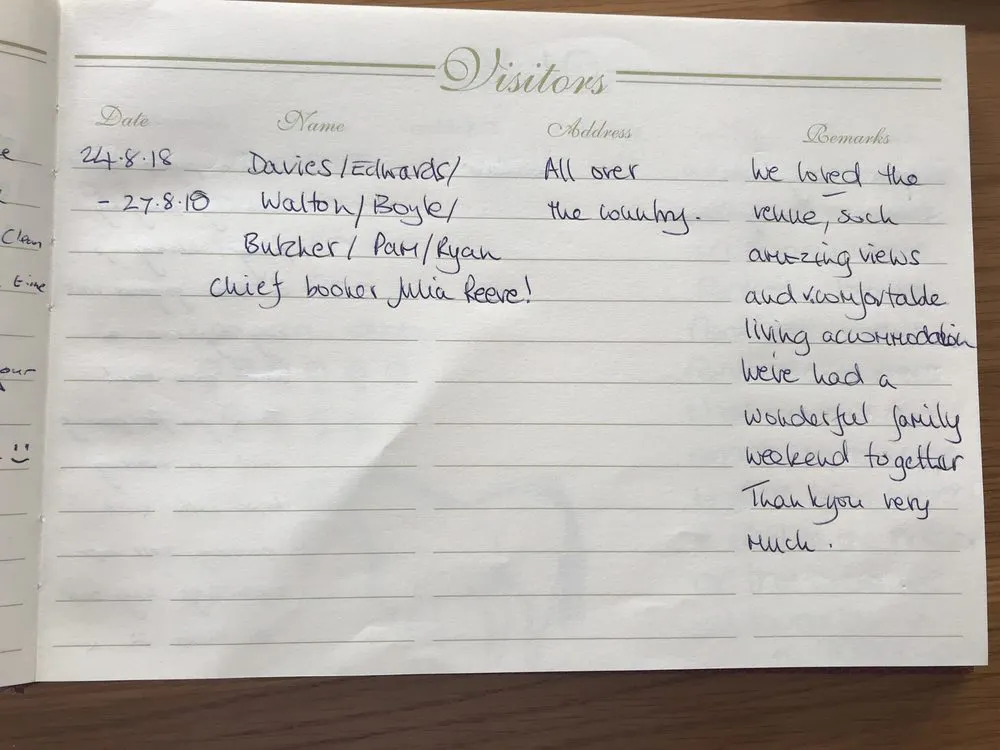 Visitors
Date Name Address Remarks
24.8.18 Davies/Edwards/ All over We loved the
- 27.8.18 Walton/Boyle/ the country. venue, such
Butcher/ Pam/Ryan amazing views
chief booker Julia Reeve! and v.comfortable
living accommodation
We've had a
wonderful family
weekend together
Thankyou very
much.
e
Clean
time
our